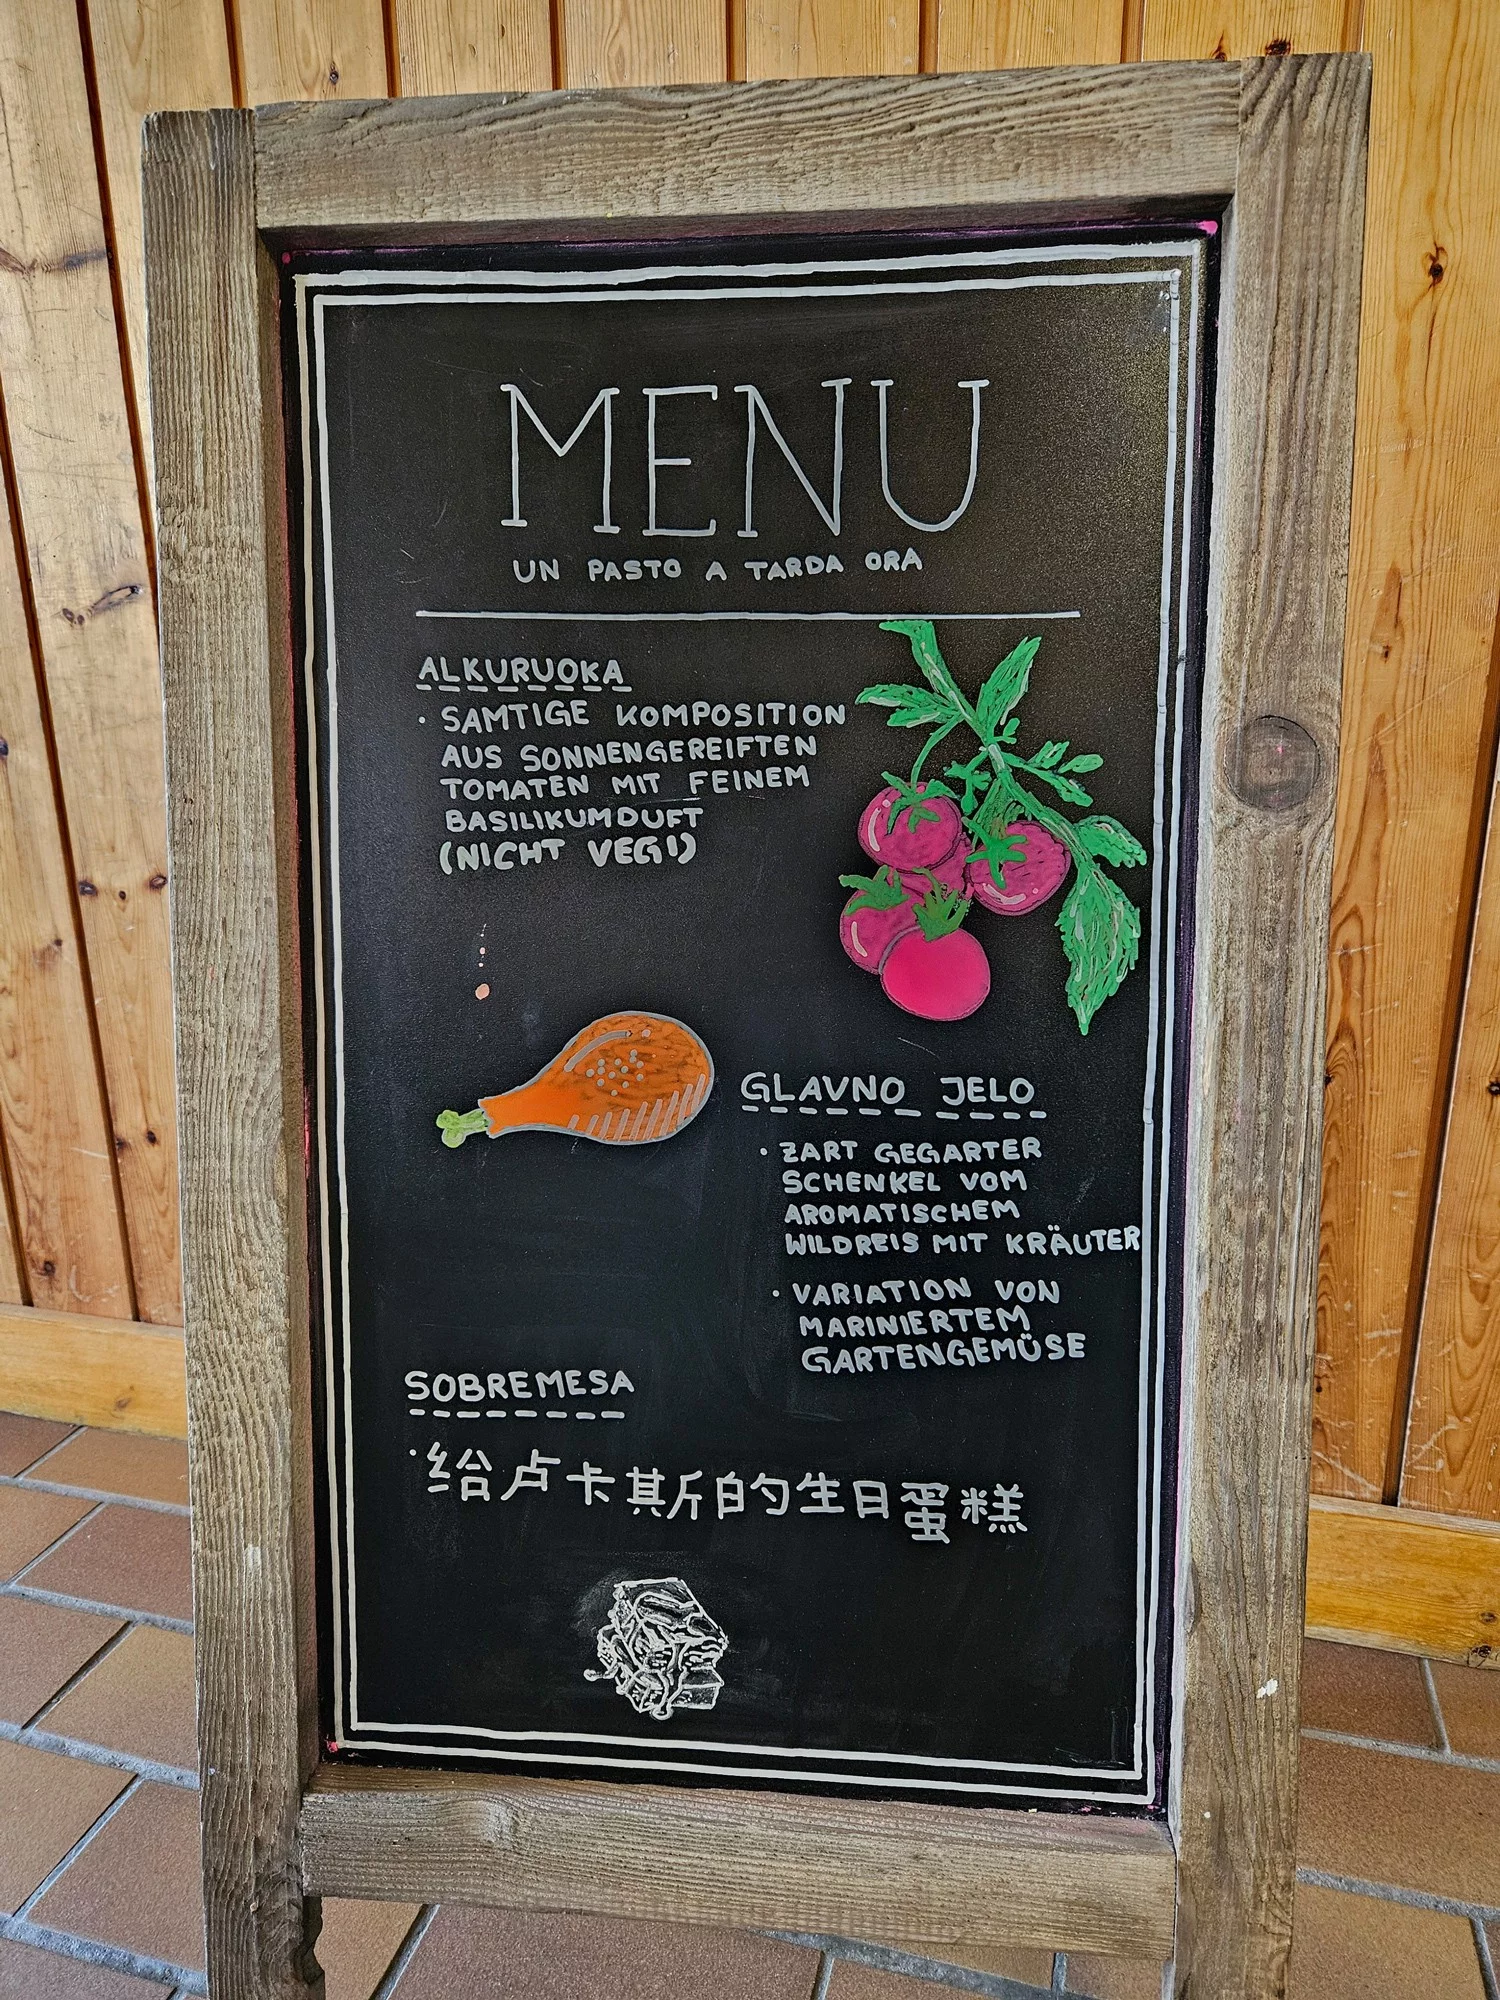 MENU
UN PASTO A TARDA ORA
ALKURUOKA
· SAMTIGE KOMPOSITION
AUS SONNENGEREIFTEN
TOMATEN MIT FEINEM
BASILIKUMDUFT
(NICHT VEGI)
GLAVNO JELO
· ZART GEGARTER
SCHENKEL VOM
AROMATISCHEM
WILDREIS MIT KRÄUTER
· VARIATION VON
MARINIERTEM
GARTENGEMÜSE
SOBREMESA
· 给卢卡其斯的生日蛋糕